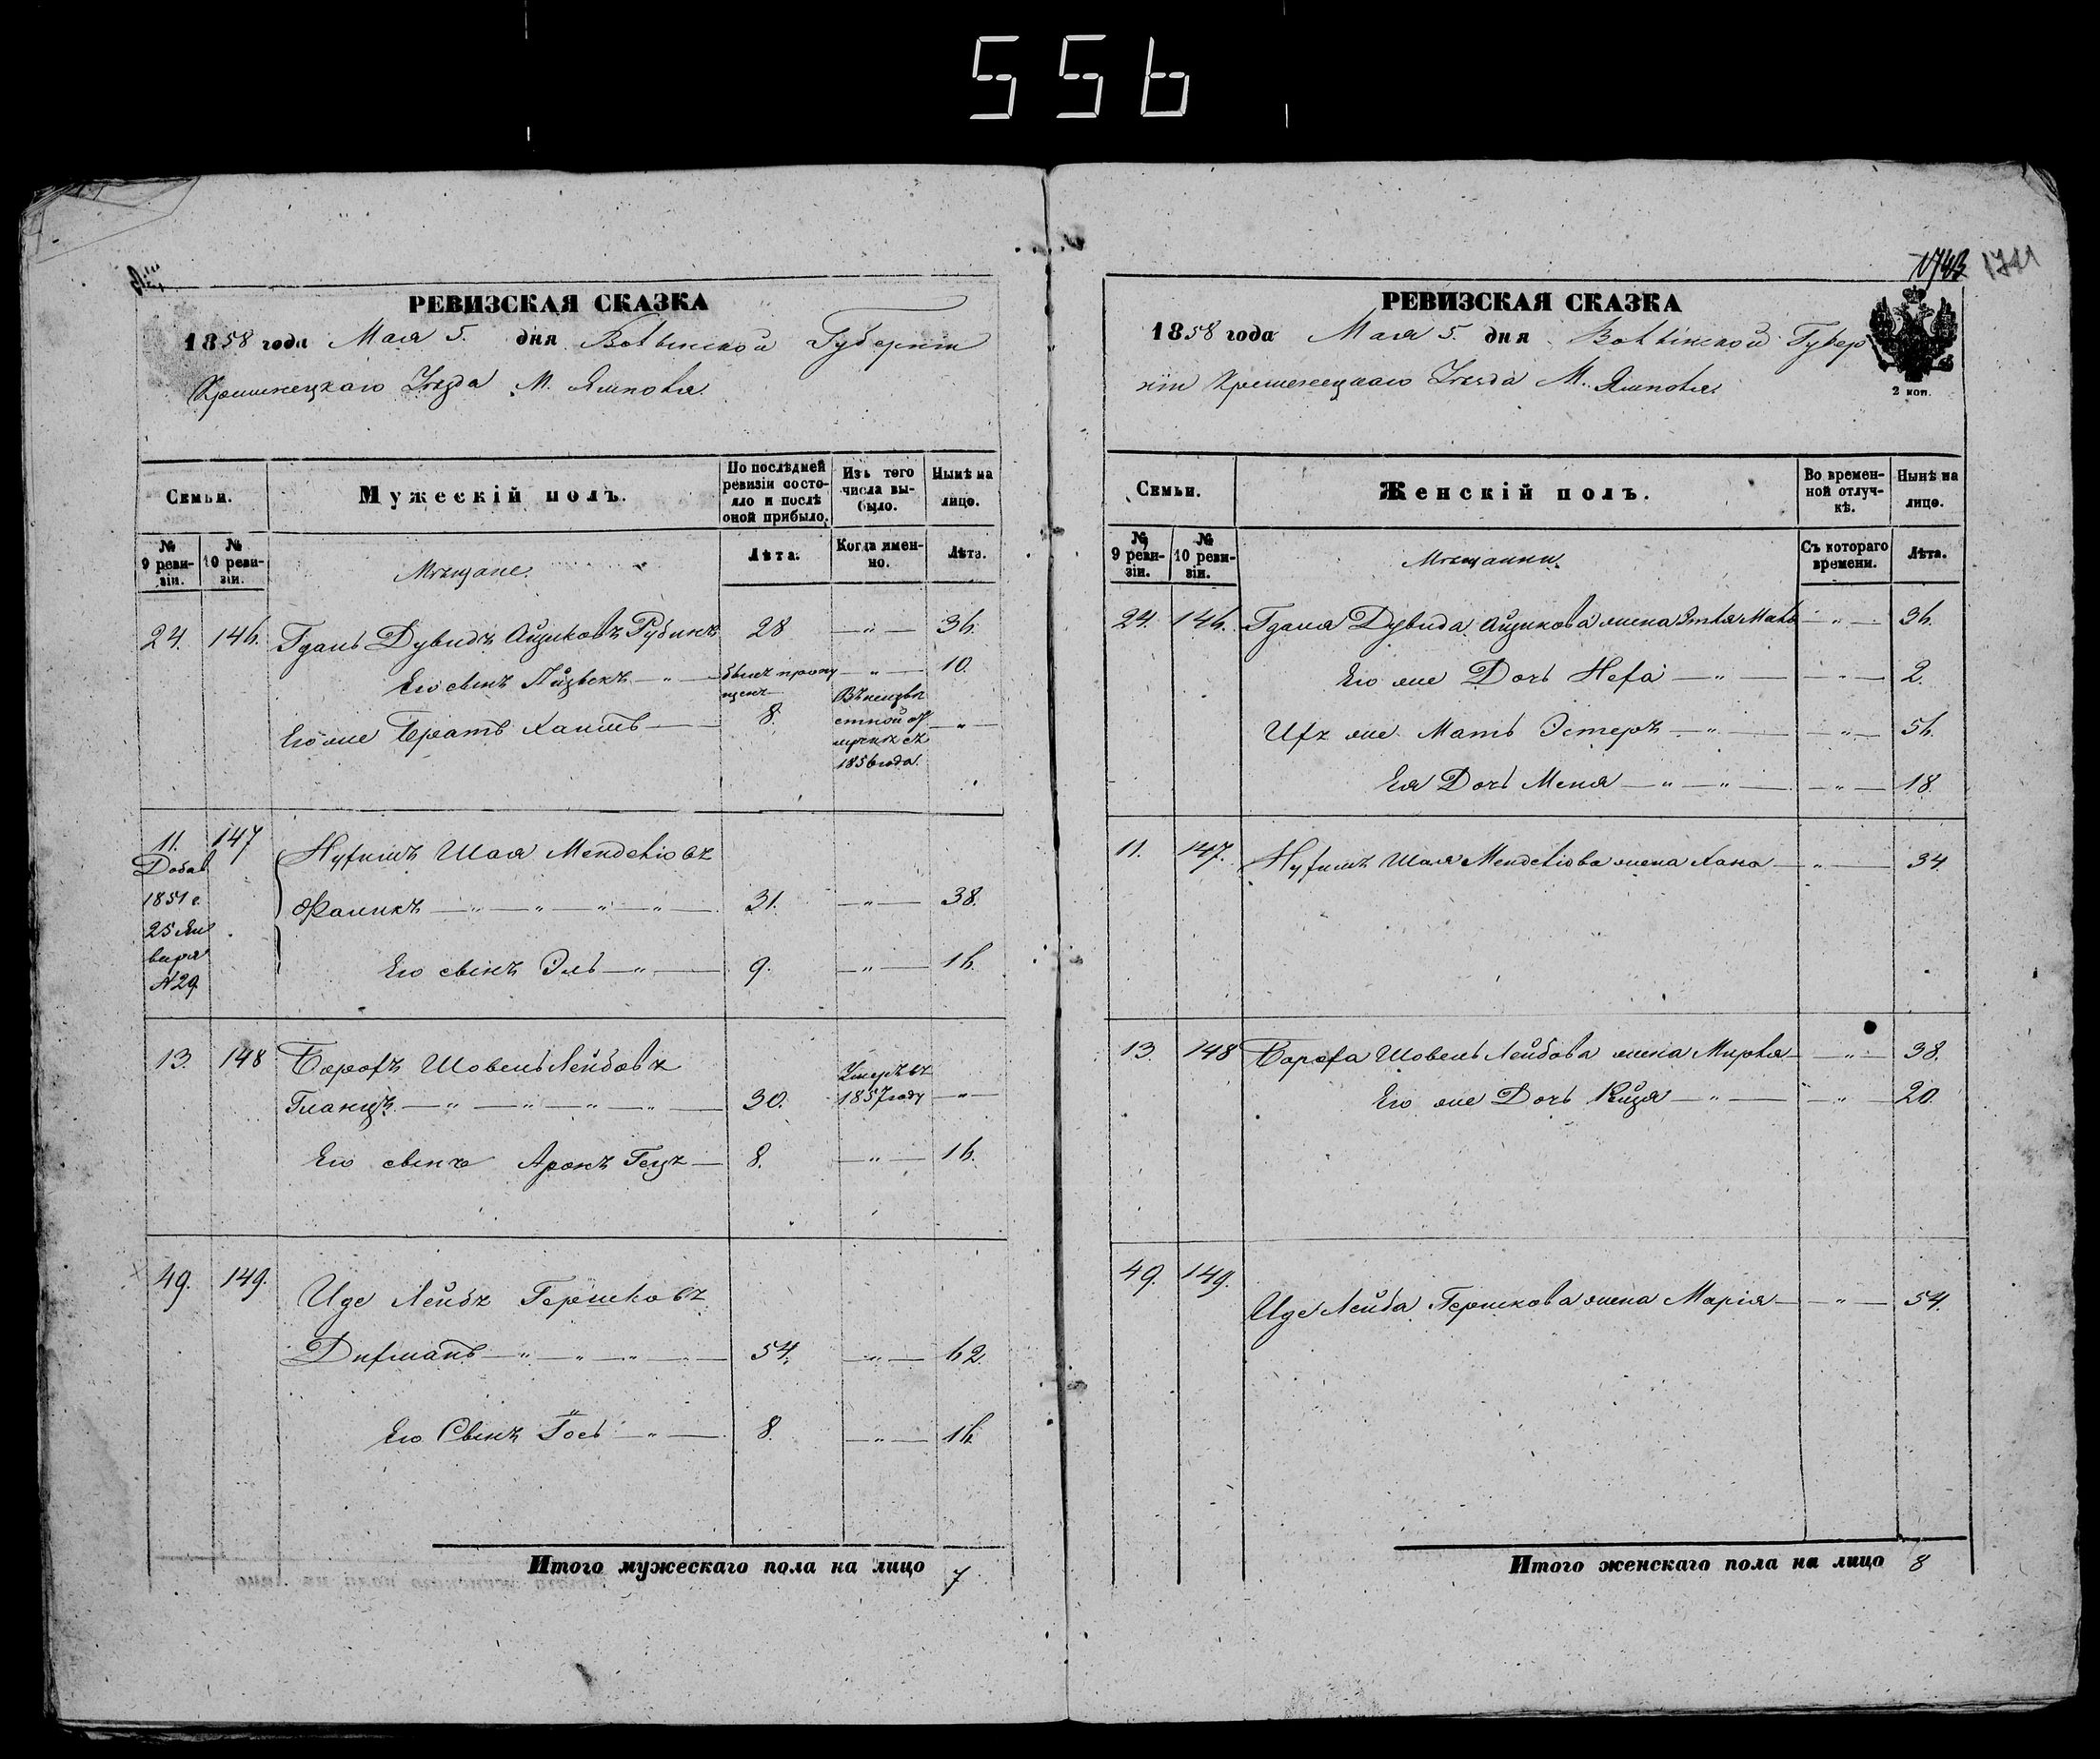 556
1743 1741
РЕВИЗСКАЯ СКАЗКА
1858 года Мая 5. дня Волынской Губерніи
Кременецкаго Уезда М. Ямполя.
Семьи.
Мужескій полъ.
По послѣдней ревизіи состояло и послѣ оной прибыло.
Изъ того числа выбыло.
Нынѣ на лицо.
№ 9 ревизіи.
№ 10 ревизіи.
Мѣщане.
Лѣта.
Когда именно.
Лѣта.
24. 146. Гдаль Дувидъ Айзиковъ Рубинъ 28 — " — 36.
Его сынъ — " — былъ пропущенъ — " — 10.
Его же Братъ Хаимъ — 8. Въ неизвѣстной отлучкѣ съ 1856 года. — " —
11. Добав 1851 г. 25 Января №29 147 Нухимъ Шая Менделіовъ
Фаликъ — " — " — " — " — 31. — " — 38.
Его сынъ Эль — " — 9. — " — 16.
13. 148 Борохъ Шовель Лейбовъ
Гланцъ — " — " — " — " — 30. Умеръ въ 1857 году — " —
Его сынъ Аронъ Гецъ — 8. — " — 16.
49. 149. Иде Лейбъ Гершковъ
Дихманъ — " — " — " — 54. — " — 62.
Его Сынъ Іось — " — 8. — " — 16.
Итого мужескаго пола на лицо 7
РЕВИЗСКАЯ СКАЗКА
1858 года Мая 5. дня Волынской Губер
ніи Кременецкаго Уезда М. Ямполя.
2 коп.
Семьи.
Женскій полъ.
Во временной отлучкѣ.
Нынѣ на лицо.
№ 9 ревизіи.
№ 10 ревизіи.
Мѣщанки.
Съ котораго времени.
Лѣта.
24. 146. Гдаля Дувида Айзикова жена — " — 36.
Его же Дочь Неха — " — — " — 2.
Ихъ же Мать Эстеръ — " — — " — 56.
Ея Дочь Меня — " — " — — " — 18.
11. 147. Нухимъ Шая Менделіова жена Хана — " — 34.
13. 148 Бороха Шовель Лейбова жена Мирля — " — 38.
Его же Дочь Рейзя — " — — " — 20.
49. 149.
Иде Лейба Гершкова жена Марія — " — 54.
Итого женскаго пола на лицо 8